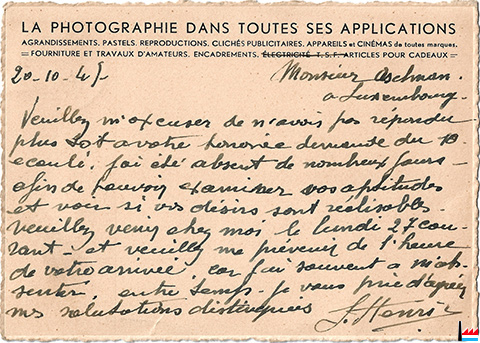 LA PHOTOGRAPHIE DANS TOUTES SES APPLICATIONS
AGRANDISSEMENTS. PASTELS. REPRODUCTIONS. CLICHÉS PUBLICITAIRES. APPAREILS et CINÉMAS de toutes marques.
FOURNITURE ET TRAVAUX D'AMATEURS. ENCADREMENTS. ÉLECTRICITÉ T.S.F. ARTICLES POUR CADEAUX
20-10-45 Monsieur Aschman.
a Luxembourg.
Veuillez m'excuser de n'avoir pas repondu
plus tot a votre honorée demande du 10
ecoulé, j'ai été absent de nombreux jours
afin de pouvoir examiner vos aptitudes
et voir si vos désirs sont réalisables.
Veuillez venir chez moi le lundi 27 cou-
rant - et veuillez me prévenir de l'heure
de votre arrivée, car j'ai souvent a m'ab-
senter entre temps. je vous prie d'agréer
mes salutations distinguées
Henri